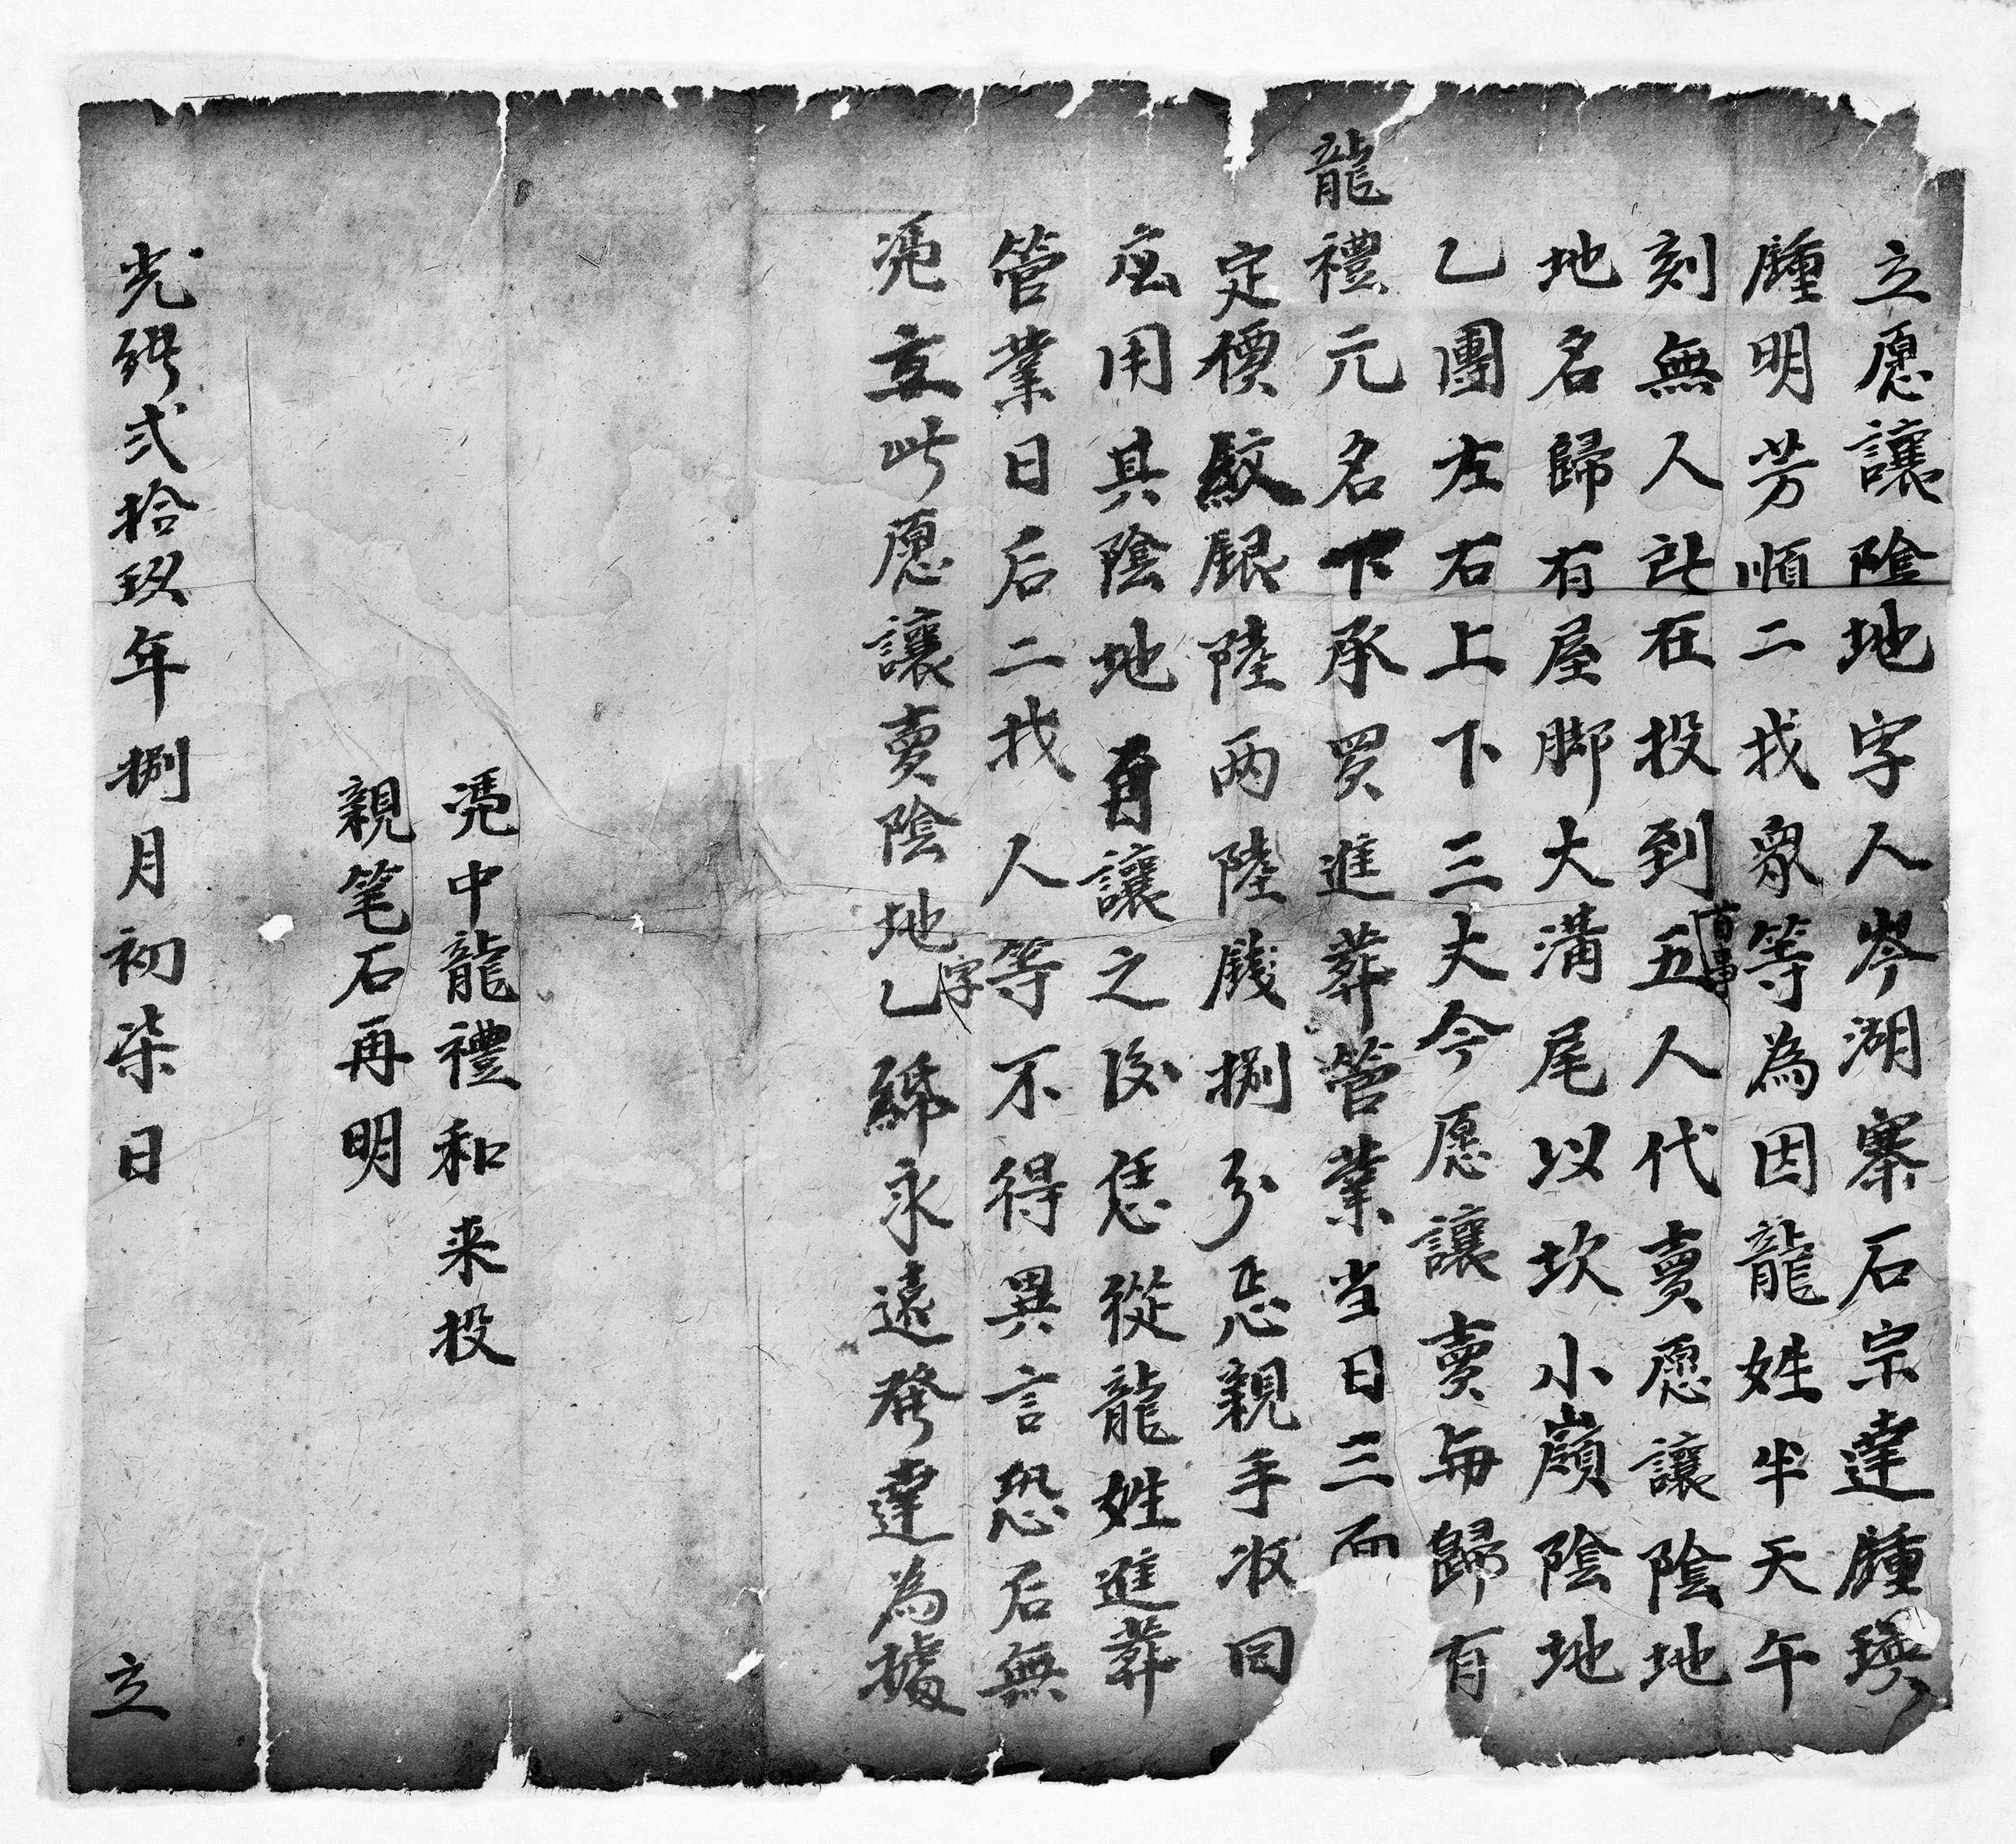 立愿讓陰地字人岑湖寨石宗達腫瑛
腫明芳順二找眾等為因龍姓半天午
刻無人訨在投到五人代賣愿讓陰地
地名歸有屋脚大溝尾以坎小嶺陰地
乙團左右上下三丈今愿讓賣与歸有
龍禮元名下承買進葬管業当日三面
定價紋銀陸両陸錢捌分忌親手收回
應用其陰地自讓之後恁從龍姓進葬
管業日后二找人等不得異言恐后無
凴立此愿讓賣陰地字乙紙永遠發達為據
凴中龍禮和来投
親笔石再明
光緒弍拾玖年捌月初柒日立